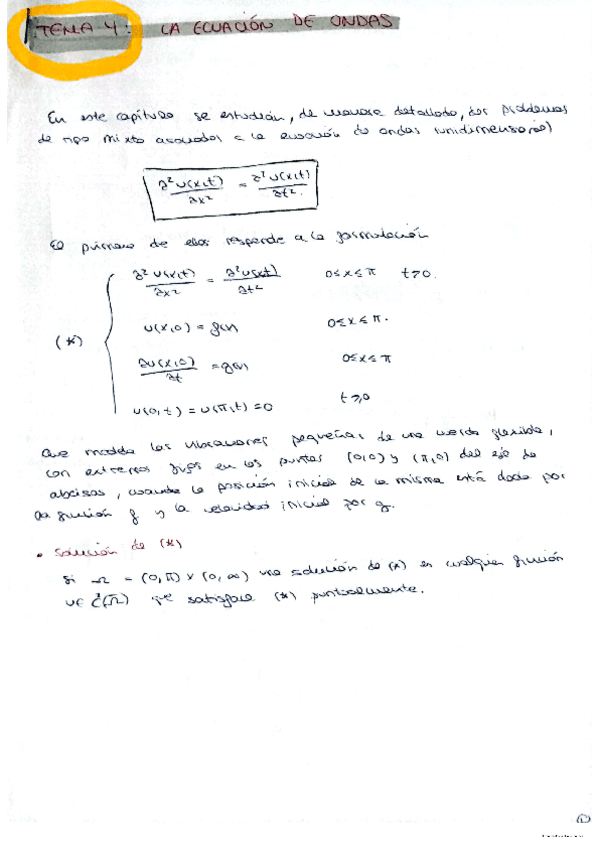 TEMA 4: LA ECUACIÓN DE ONDAS
En este capítulo se estudian, de manera detallada, dos problemas
de tipo mixto asociados a la ecuación de ondas unidimensional
∂²u(x,t)/∂x² = ∂²u(x,t)/∂t².
El primero de ellos responde a la formulación
(*) { ∂²u(x,t)/∂x² = ∂²u(x,t)/∂t² 0≤x≤π t>0.
u(x,0) = f(x) 0≤x≤π.
∂u(x,0)/∂t = g(x) 0≤x≤π
u(0,t) = u(π,t) = 0 t≥0
Que modela las vibraciones pequeñas de una cuerda flexible,
con extremos fijos en los puntos (0,0) y (π,0) del eje de
abcisas, cuando la posición inicial de la misma está dada por
la función f y la velocidad inicial por g.
• Solución de (*)
Si Ω = (0,π) x (0,∞) una solución de (*) es cualquier función
u∈ C²(Ω̅) que satisface (*) puntualmente.